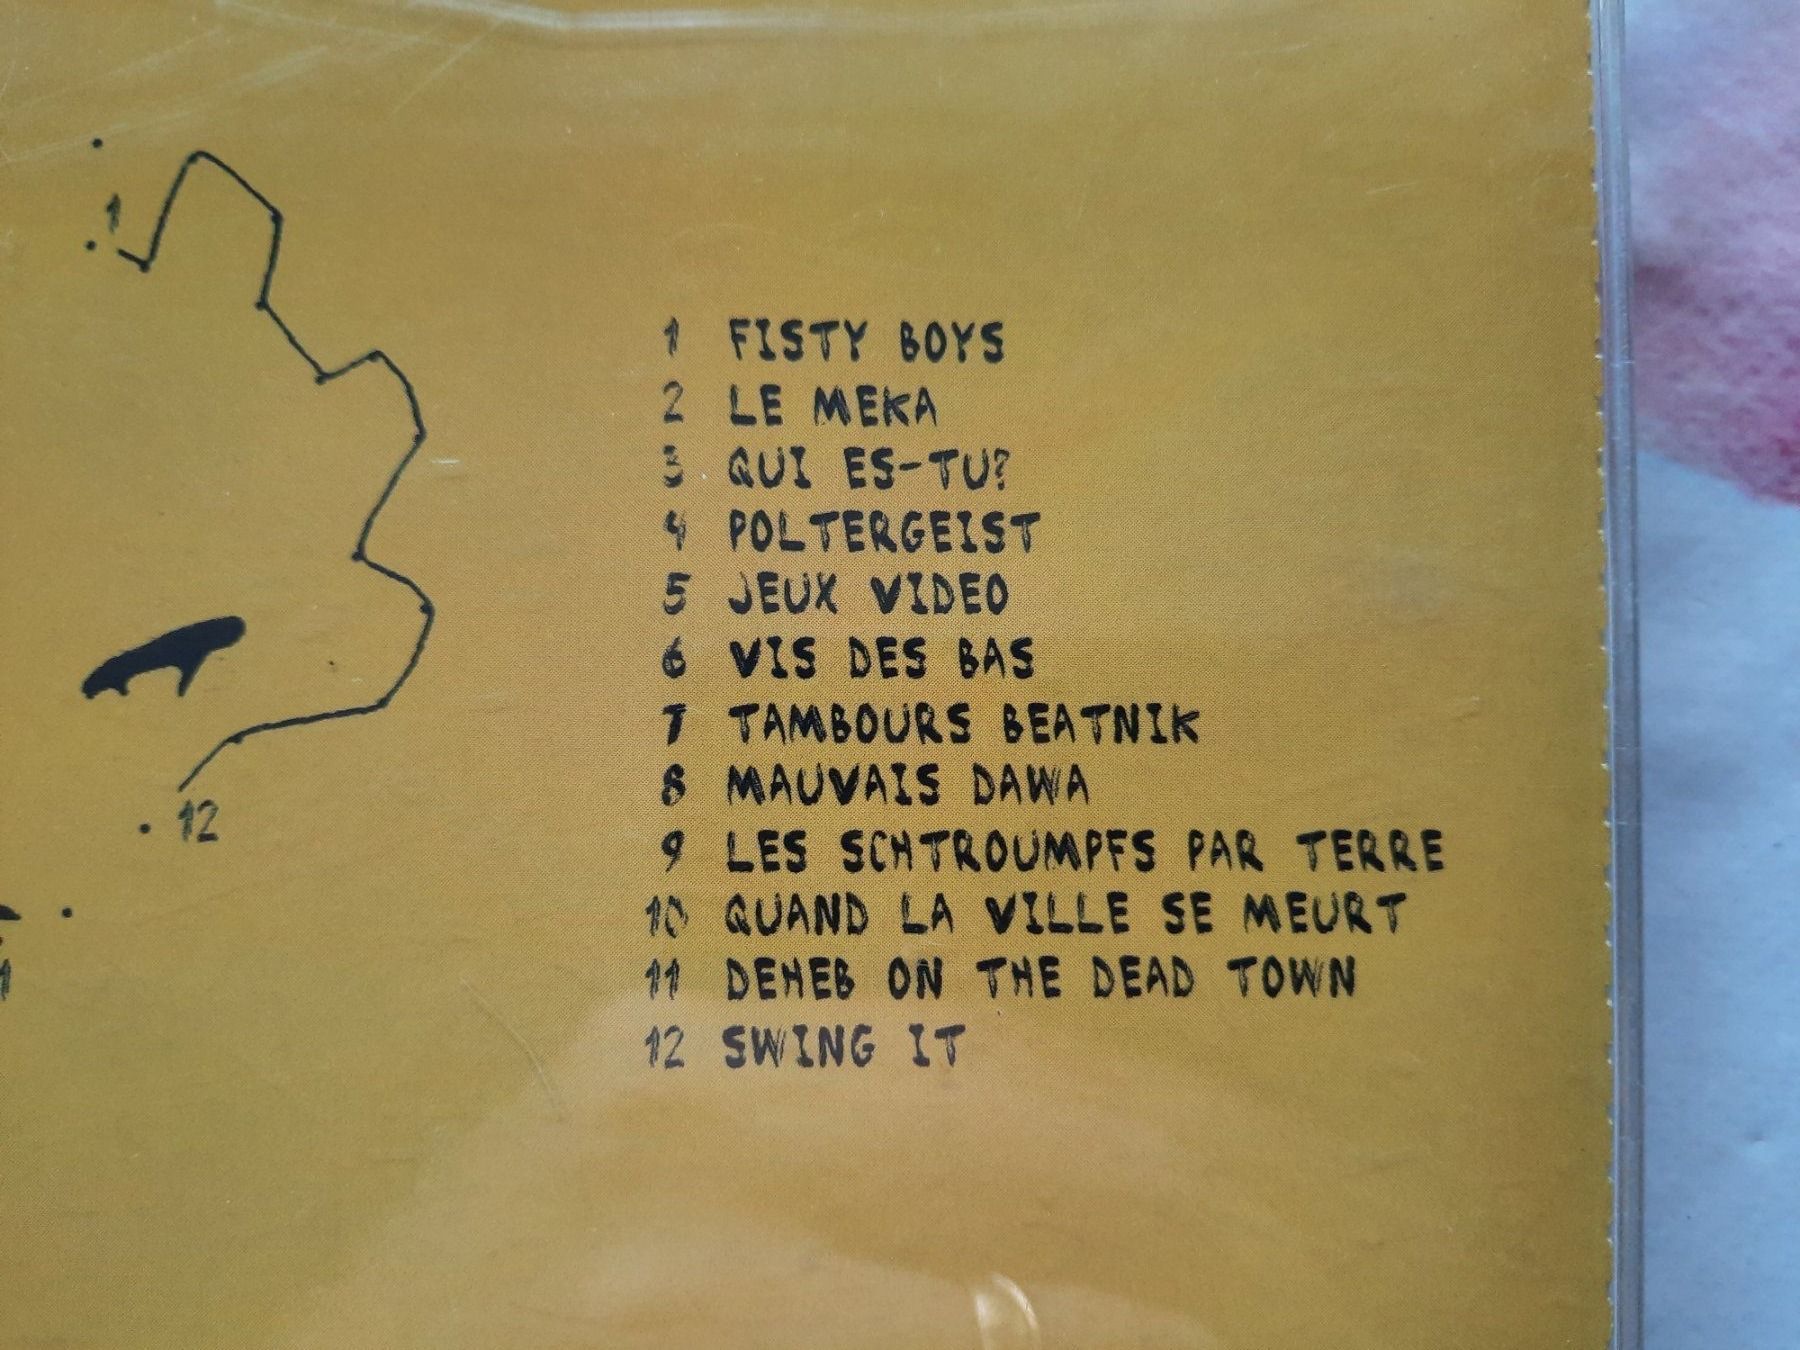 1
1 FISTY BOYS
2 LE MEKA
3 QUI ES-TU?
4 POLTERGEIST
5 JEUX VIDEO
6 VIS DES BAS
7 TAMBOURS BEATNIK
8 MAUVAIS DAWA
12
9 LES SCHTROUMPFS PAR TERRE
10 QUAND LA VILLE SE MEURT
11 DEHEB ON THE DEAD TOWN
12 SWING IT